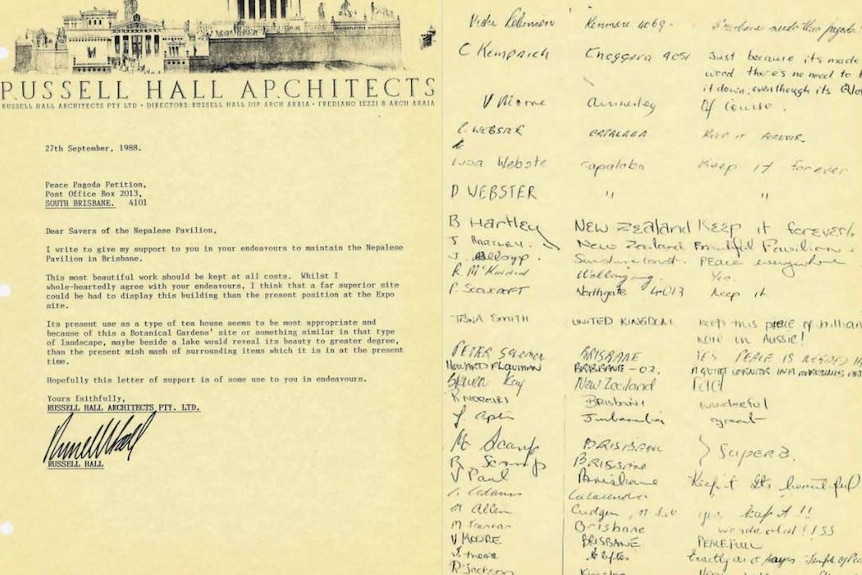 RUSSELL HALL ARCHITECTS
RUSSELL HALL ARCHITECTS PTY LTD • DIRECTORS: RUSSELL HALL DIP ARCH ARAIA • FREDIANO IEZZI B ARCH ARAIA
27th September, 1988.
Peace Pagoda Petition,
Post Office Box 2013,
SOUTH BRISBANE. 4101
Dear Savers of the Nepalese Pavilion,
I write to give my support to you in your endeavours to maintain the Nepalese
Pavilion in Brisbane.
This most beautiful work should be kept at all costs. Whilst I
whole-heartedly agree with your endeavours, I think that a far superior site
could be had to display this building than the present position at the Expo
site.
Its present use as a type of tea house seems to be most appropriate and
because of this a Botanical Gardens' site or something similar in that type
of landscape, maybe beside a lake would reveal its beauty to greater degree,
than the present mish mash of surrounding items which it is in at the present
time.
Hopefully this letter of support is of some use to you in endeavours.
Yours faithfully,
RUSSELL HALL ARCHITECTS PTY. LTD.
Russell Hall
RUSSELL HALL
Kenmore 4069.
C Enoggera 4051 Just because its made
wood there's no need to
it down, even though its
V Annerley Of Course.
C. WEBSTER Keep it forever.
Lisa Webste capalaba Keep it forever
D WEBSTER " "
B Hartley NEW Zealand Keep it forever!
J HARTLEY. New Zealand Beautiful Pavilion
J. Peace everywhere
R. Wollongong. Yes.
P. Northgate 4013 Keep it
TRINA SMITH UNITED KINGDOM Keep this piece of
HERE in Aussie!
PETER BRISBANE YES PEACE IS NEEDED
BRISBANE
Kay New Zealand
Brisbane wonderful
J. great
M BRISBANE } SUPERB.
R. BRISBANE
V Paul Brisbane Keep it Its beautiful
Adams Caloundra
Allen Cudgen, N.S.W yes keep it!!
M Brisbane wonderful!!
V MOORE BRISBANE PEACEFULL
Exactly as it says
R Jackson